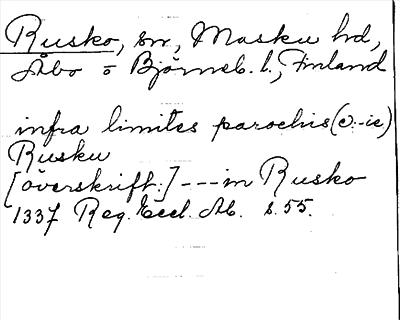 Rusko, sn, Masku hd,
Åbo o Björneb. l., Finland
infra limites parochis (ɔ:-ie)
Rusku
[överskrift:] --- in Rusko
1337 Reg. Eccl. Ab. s. 55.